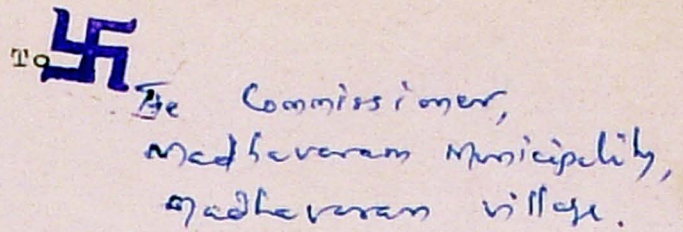 To
The Commissioner,
Madhavaram Municipality,
Madhavaram village.